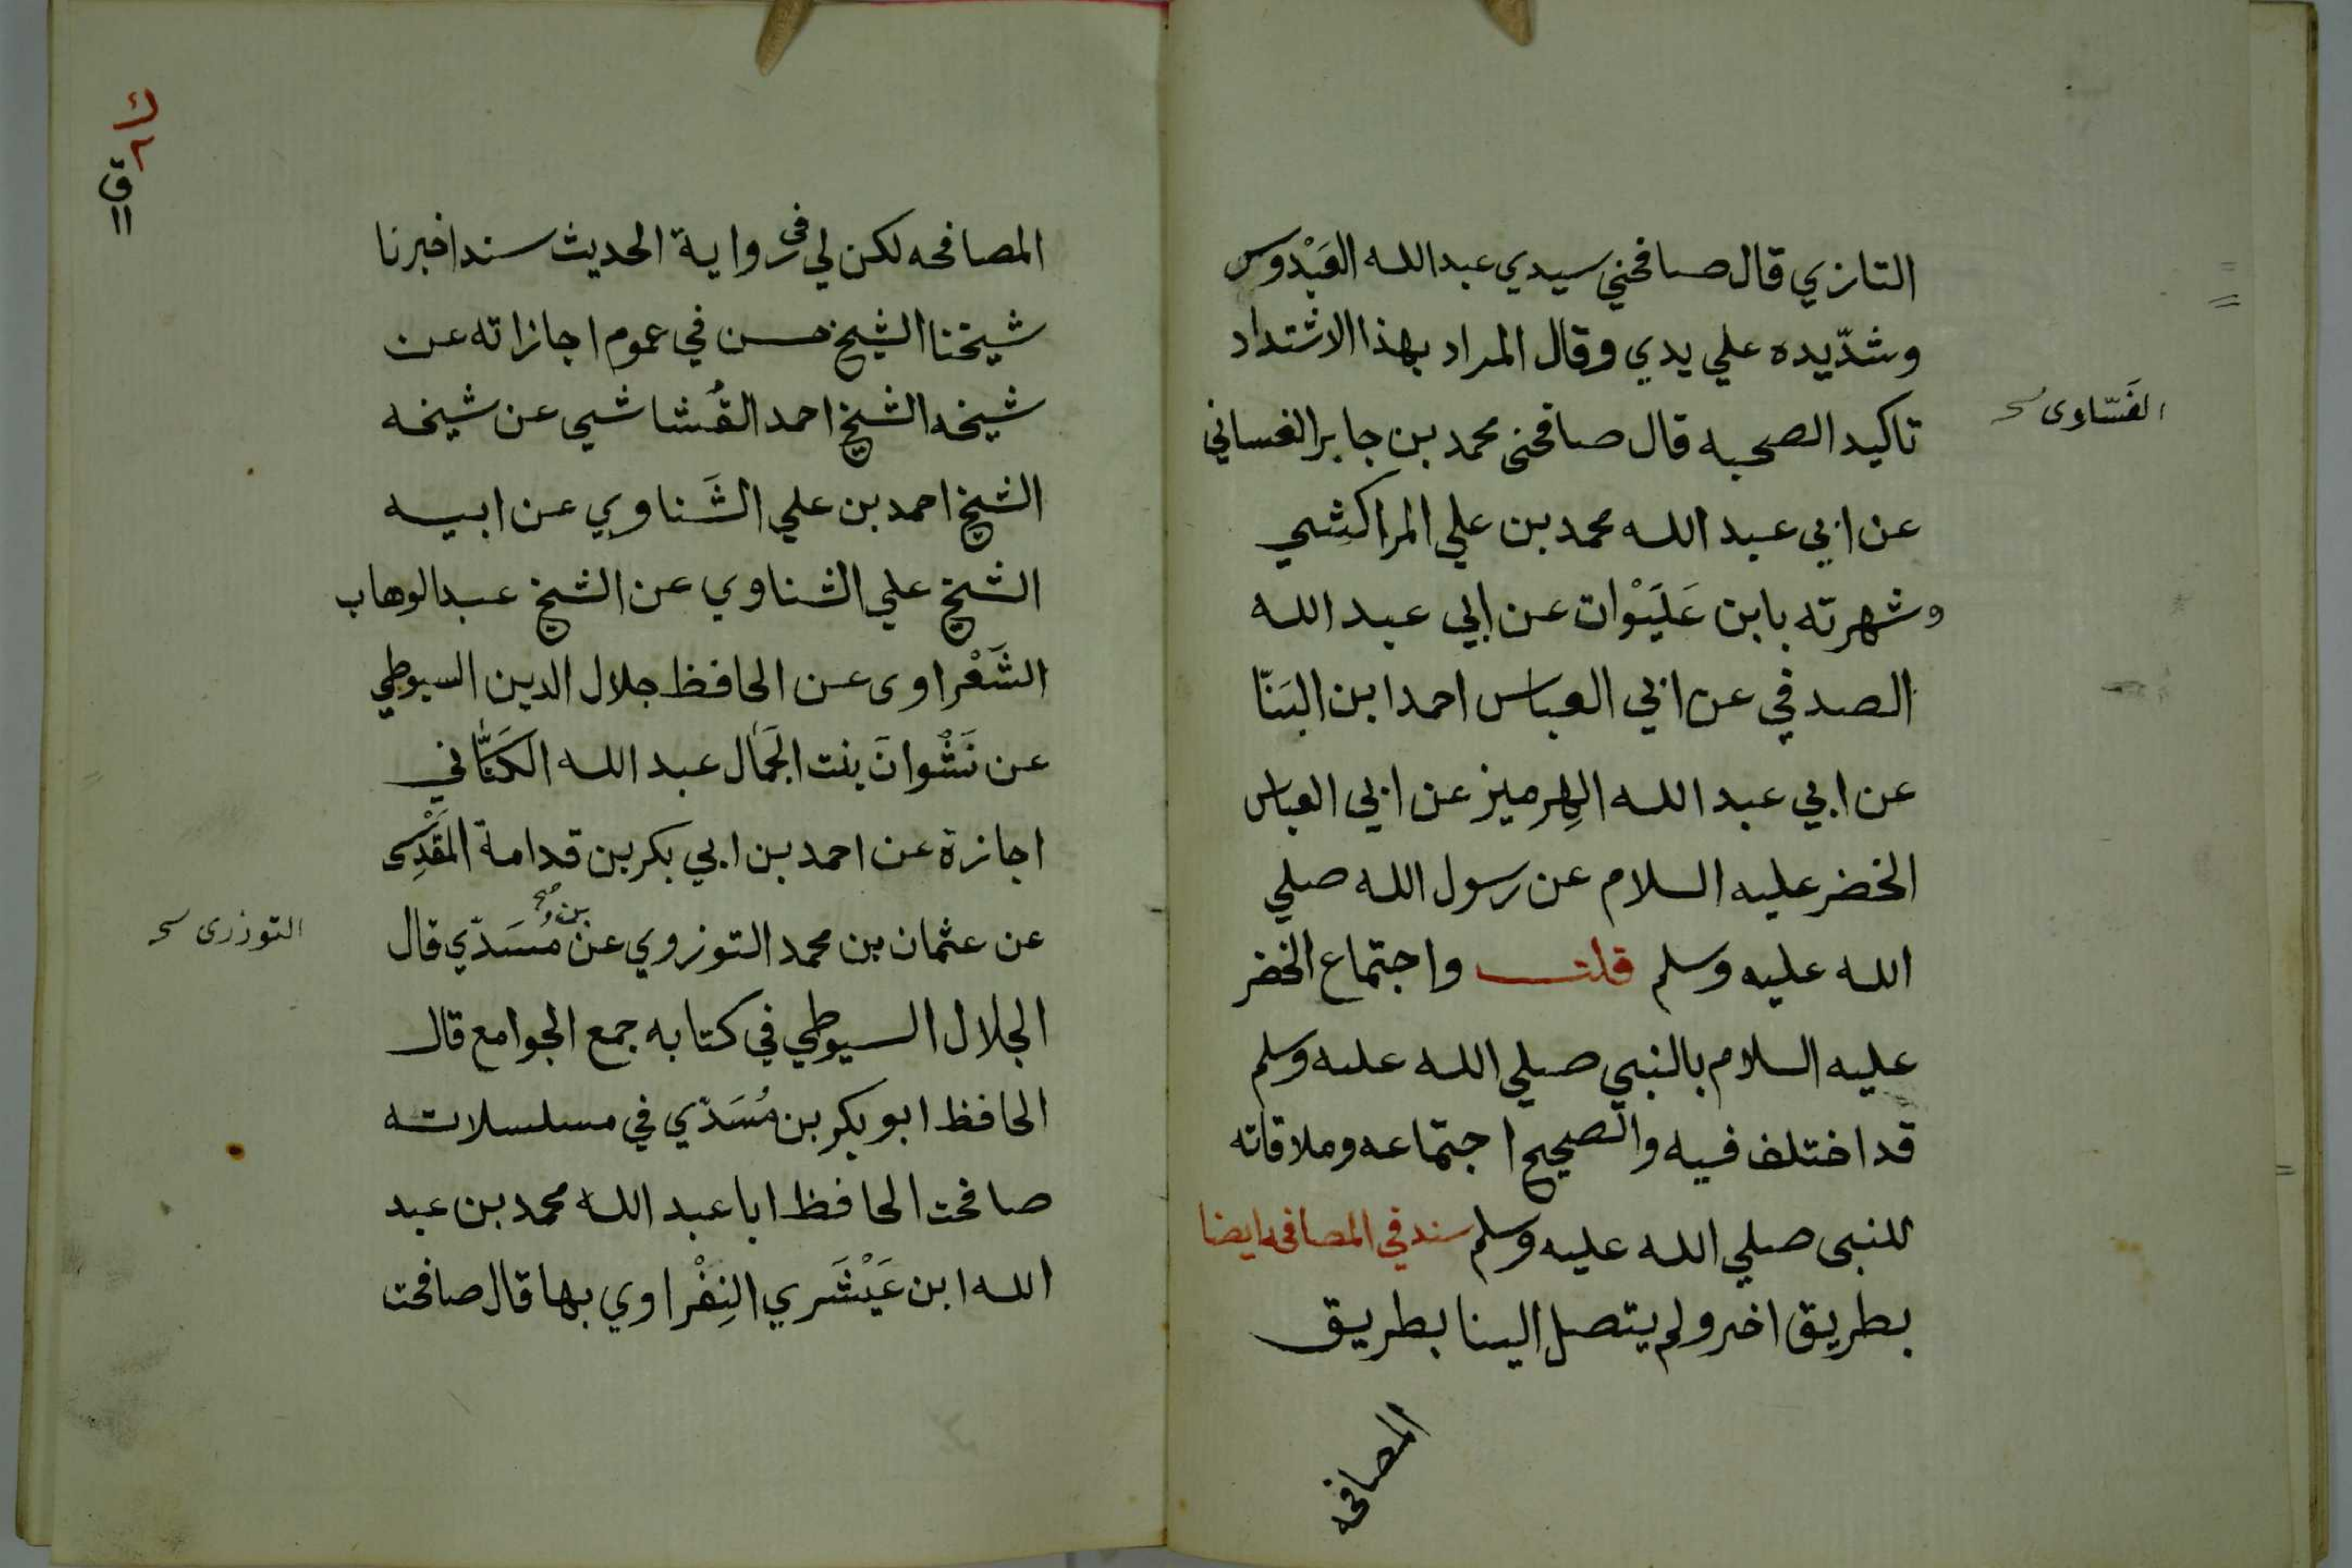 التازي قال صافحني سيدي عبدالله العَبْدوس
وشدّ يده علي يدي وقال المراد بهذا الاشتداد
تاكيد الصحبه قال صافحنى محمد بن جابر الغساني
الغَسّاوى
عن ابي عبد الله محمد بن علي المراكشِي
وشهرته بابن عَلَيْوان عن ابي عبد الله
الصدفي عن ابي العباس احمد ابن البَنّا
عن ابي عبد الله الهِرميز عن ابي العباس
الخضر عليه السلام عن رسول الله صلي
الله عليه وسلم قلت واجتماع الخضر
عليه السلام بالنبي صلي الله عليه وسلم
قد اختلف فيه والصحيح اجتماعه وملاقاته
للنبى صلي الله عليه وسلم سند في المصافحه ايضا
بطريق اخر ولم يتصل الينا بطريق
المصافحه
المصافحه لكن لي في رواية الحديث سند اخبرنا
شيخنا الشيخ حسن في عموم اجازاته عن
شيخه الشيخ احمد القُشاشي عن شيخه
الشيخ احمد بن علي الشَناوي عن ابيه
الشيخ علي الشناوي عن الشيخ عبدالوهاب
الشَعْراوى عن الحافظ جلال الدين السيوطي
عن نَشْوانَ بنت الجَمَال عبد الله الكَنّاني
اجازة عن احمد بن ابي بكر بن قدامة المَقْدِسى
عن عثمان بن محمد التوزروي عن بن مُسَدّي قال
التوزرى
الجلال السيوطي في كتابه جمع الجوامع قال
الحافظ ابو بكر بن مُسَدّي في مسلسلاته
صافحت الحافظ ابا عبد الله محمد بن عبد
الله ابن عَيْشَري النِفْراوي بها قال صافحت